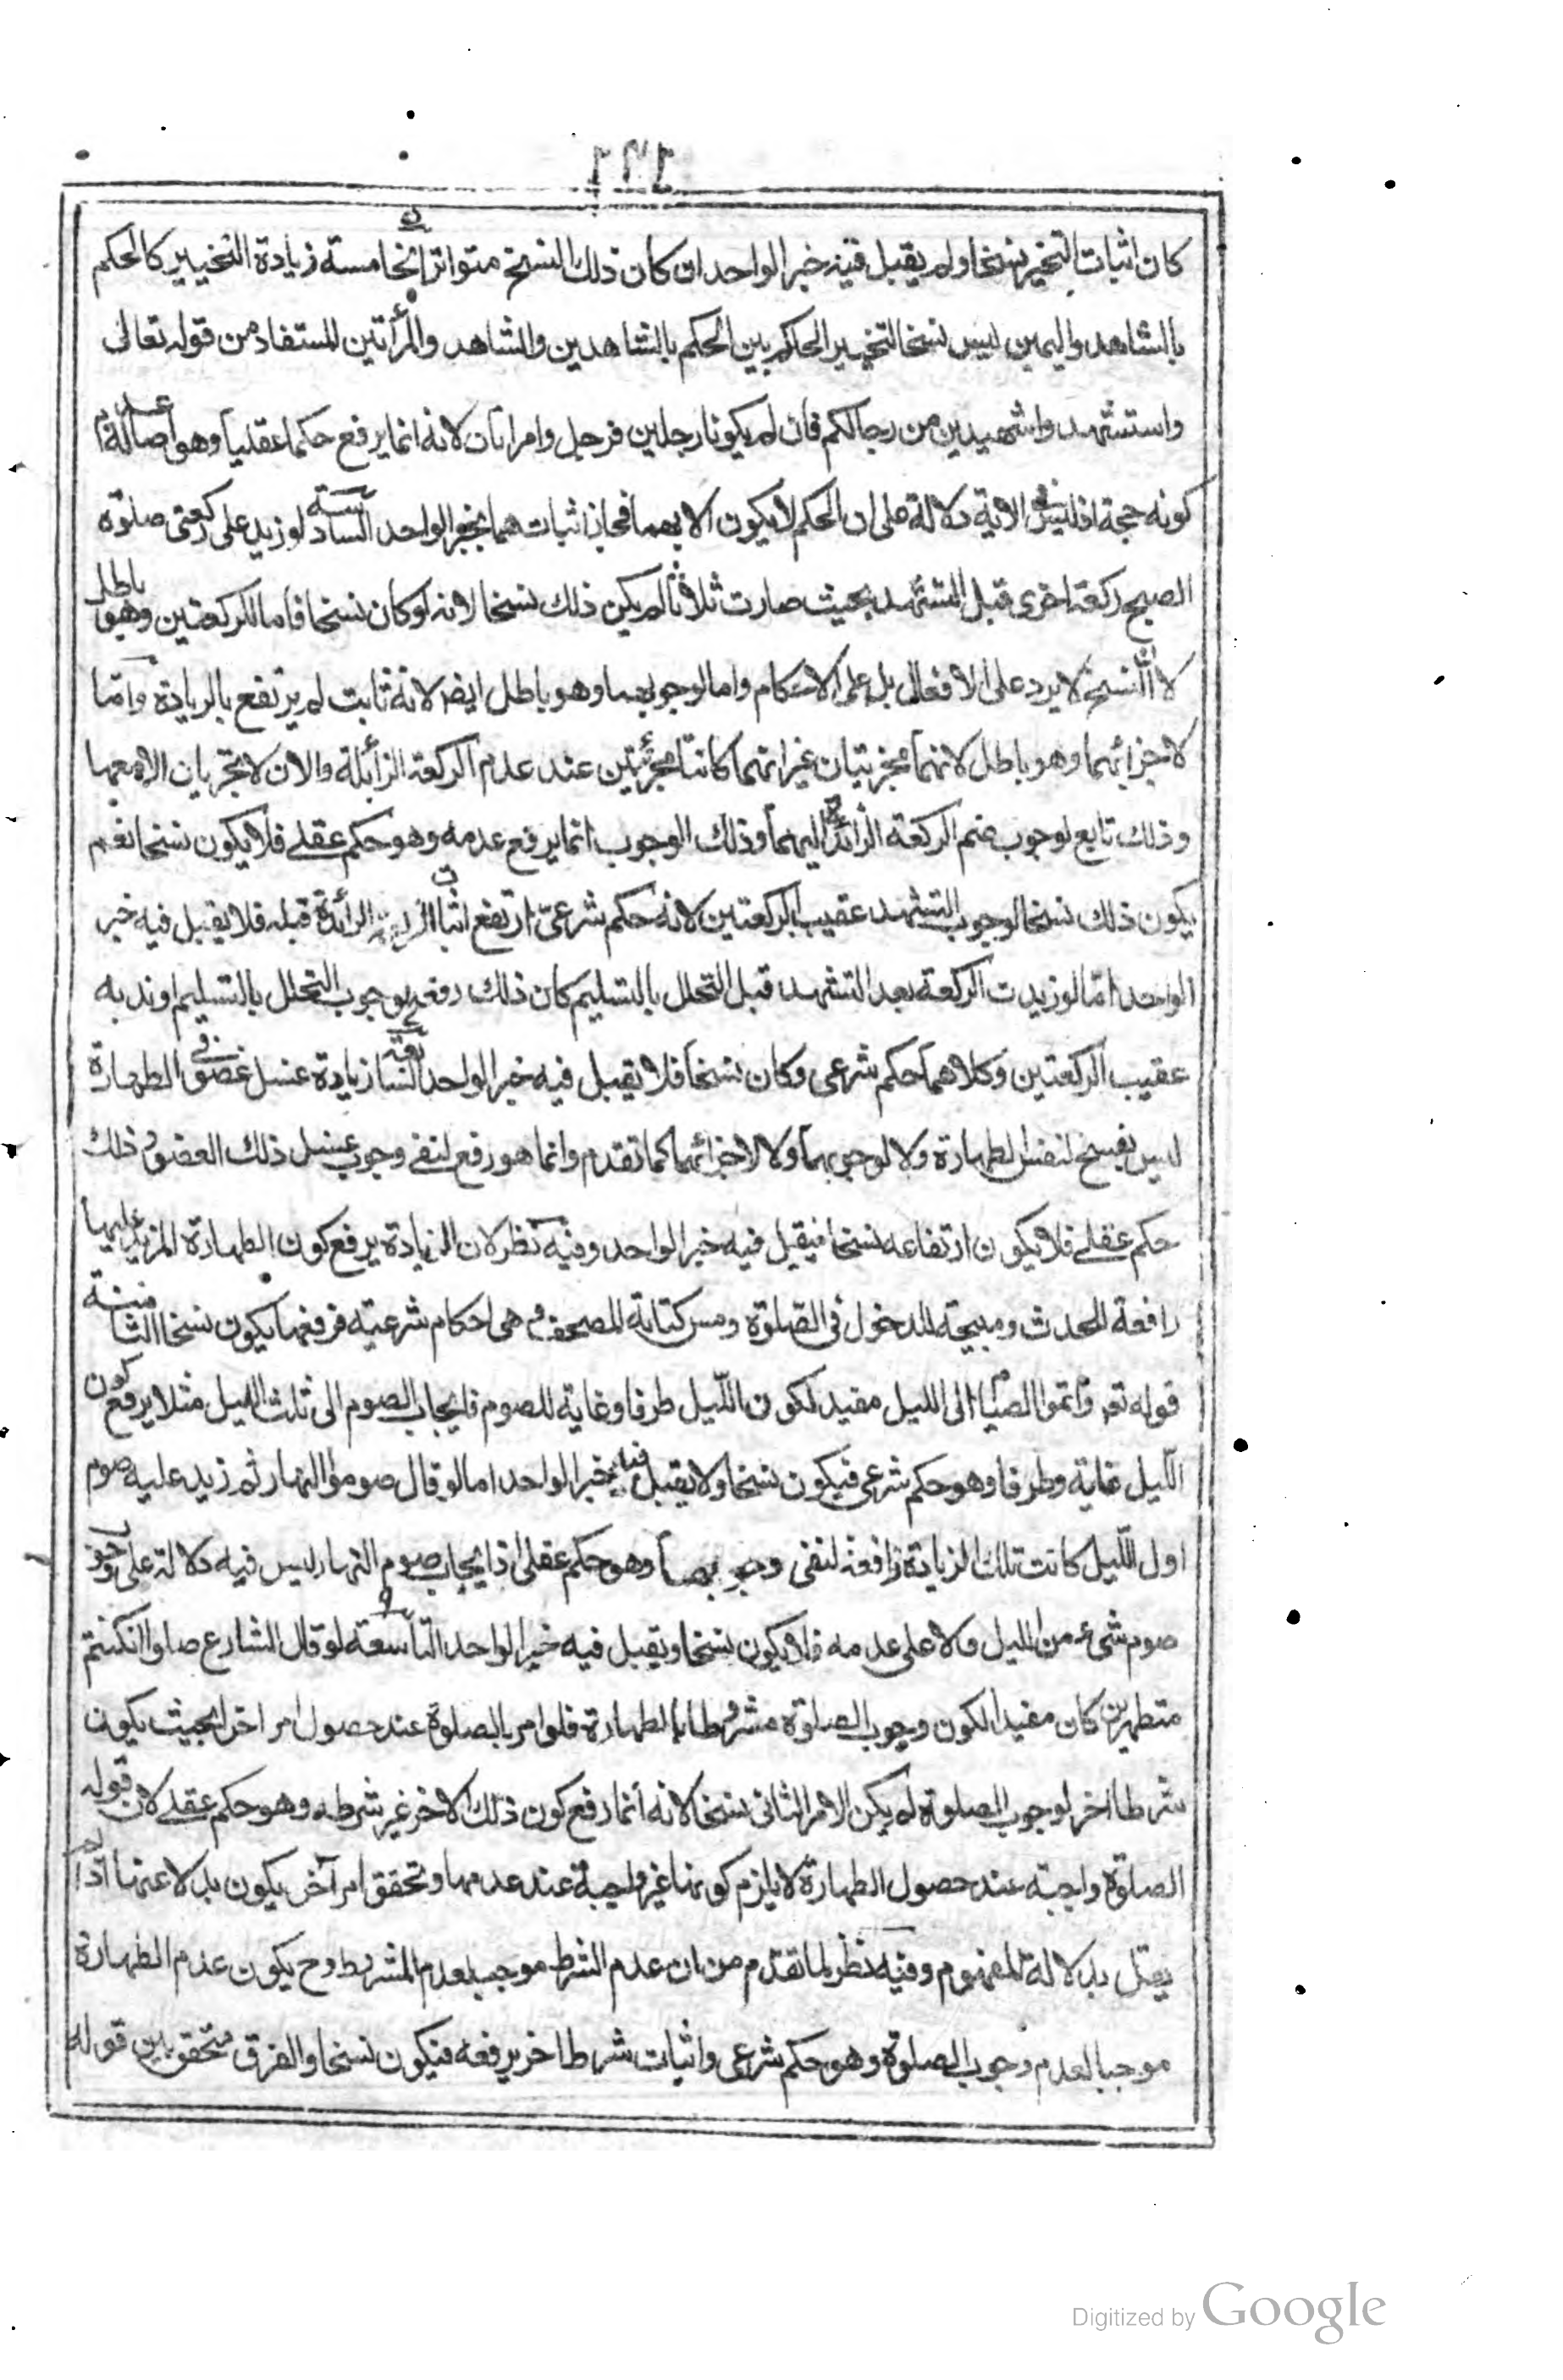 كان اثبات التخيير نسخا ولم يقبل فيه خبر الواحد ان كان ذلك النسخ متواترا الخامسة زيادة التخيير كالحكم
بالشاهد واليمين ليس نسخا لتخيير الحكم بين الحكم بالشاهدين والشاهد والمرأتين المستفاد من قوله تعالى
واستشهدوا شهيدين من رجالكم فان لم يكونا رجلين فرجل وامراتان لانه انما يرفع حكما عقليا وهو اصالة عدم
كونه حجة اذ ليس في الاية دلالة على ان الحكم لا يكون الا بهما فجاز اثبات هما بخبر الواحد السادسة لو زيد على ركعتى صلوة
الصبح ركعة اخرى قبل التشهد بحيث صارت ثلاثا لم يكن ذلك نسخا لانه لو كان نسخا فاما للركعتين وهو باطل
لان النسخ لا يرد على الافعال بل على الاحكام واما لوجوبهما وهو باطل ايضا لانه ثابت لم يرتفع بالزيادة واما
لاجزائهما وهو باطل لانهما مجزيتان غير انهما كانتا مجزئتين عند عدم الركعة الزائلة والان لا تجزيان الا معها
وذلك تابع لوجوب ضم الركعة الزائدة اليهما وذلك الوجوب انما يرفع عدمه وهو حكم عقلى فلا يكون نسخا نعم
يكون ذلك نسخا لوجوب التشهد عقيب الركعتين لانه حكم شرعى ارتفع اثبات الزائدة قبله فلا يقبل فيه خبر
الواحد اما لو زيدت الركعة بعد التشهد قبل التحلل بالتسليم كان ذلك رفعا لوجوب التحلل بالتسليم او ندبه
عقيب الركعتين وكلاهما حكم شرعى وكان نسخا فلا يقبل فيه خبر الواحد السابعة زيادة غسل عضو في الطهارة
ليس بفسخ لنفس الطهارة ولا لوجوبها ولا لاجزائهما كما تقدم وانما هو رفع لنفى وجوب غسل ذلك العضو وذلك
حكم عقلى فلا يكون ارتفاعه نسخا فيقبل فيه خبر الواحد وفيه نظر لان الزيادة يرفع كون الطهارة المزيد عليها
رافعة للحدث ومبيحة للدخول فى الصلوة ومس كتابة المصحف وهى احكام شرعية فرفعها يكون نسخا الثامنة
قوله تعم واتموا الصيام الى الليل مفيد لكون الليل طرفا وغاية للصوم فايجاب الصوم الى ثلث الليل مثلا يرفع كون
الليل غاية وطرفا وهو حكم شرعى فيكون نسخا ولا يقبل فيه خبر الواحد اما لو قال صوموا النهار ثم زيد عليه صوم
اول الليل كانت تلك الزيادة رافعة لنفى وجوبها وهو حكم عقلى اذ ايجاب صوم النهار ليس فيه دلالة على وجوب
صوم شىء من الليل ولا على عدمه فلا يكون نسخا ويقبل فيه خبر الواحد التاسعة لو قال الشارع صلوا ان كنتم
متطهرين كان مفيدا لكون وجوب الصلوة مشروطا بالطهارة فلو امر بالصلوة عند حصول امر اخر بحيث يكون
شرطا اخر لوجوب الصلوة لم يكن الامر الثانى نسخا لانه انما رفع كون ذلك الاخر غير شرط وهو حكم عقلى لان قوله
الصلوة واجبة عند حصول الطهارة لا يلزم كونها غير واجبة عند عدمها وتحقق امر آخر يكون بدلا عنها اذا لم
يقل بدلالة المفهوم وفيه نظر لما تقدم من ان عدم الشرط موجب لعدم المشروط وح يكون عدم الطهارة
موجبا لعدم وجوب الصلوة وهو حكم شرعى واثبات شرط اخر يرفعه فيكون نسخا والفرق متحقق بين قوله
Digitized by Google